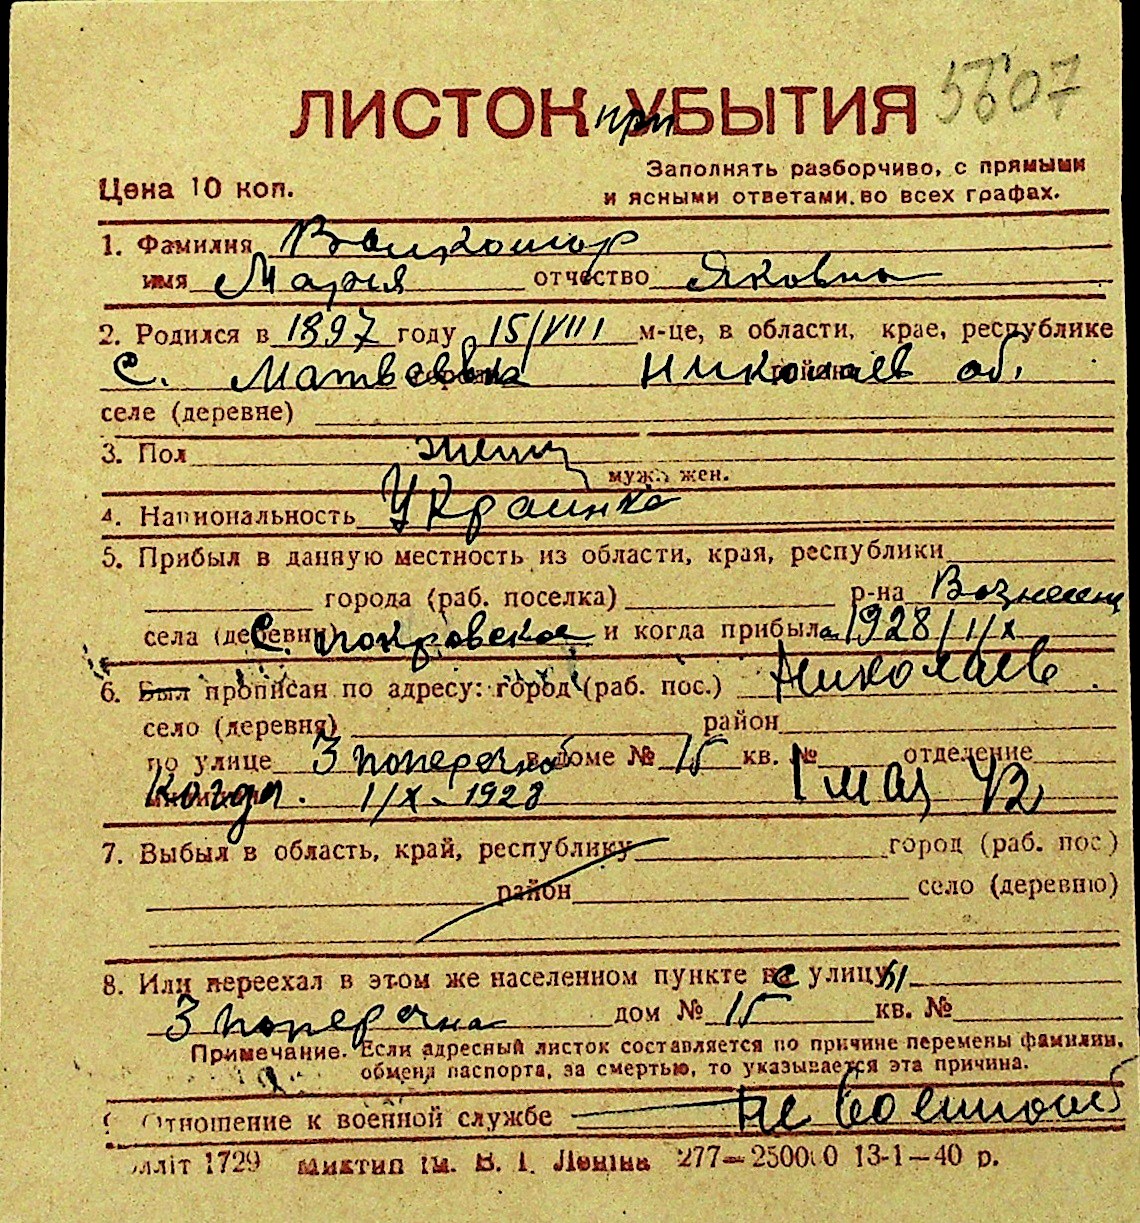 5607
ЛИСТОК при УБЫТИЯ
Заполнять разборчиво, с прямыми
Цена 10 коп.
и ясными ответами во всех графах.
1. Фамилия
имя Мария отчество Яковна
2. Родился в 1897 году 15/VIII м-це, в области, крае, республике
с. Матвеевка Николаев об.
селе (деревне)
3. Пол женщ
муж. жен.
4. Национальность Украинка
5. Прибыл в данную местность из области, края, республики
города (раб. поселка) р-на Вознесенц
села (деревни) с. покровское и когда прибыла 1928/1/X
6. Был прописан по адресу: город (раб. пос.) Николаев
село (деревня) район
по улице 3 поперечной в доме № 15 кв. № отделение
Когда. 1/X-1928 1 мая 42
7. Выбыл в область, край, республику город (раб. пос.)
район село (деревню)
8. Или переехал в этом же населенном пункте с улицы
3 поперечна дом № 15 кв. №
Примечание. Если адресный листок составляется по причине перемены фамилии,
обмена паспорта, за смертью, то указывается эта причина.
Отношение к военной службе не военнооб
1729 Миктип ім. В. І. Леніна 277—25000 13-1—40 р.